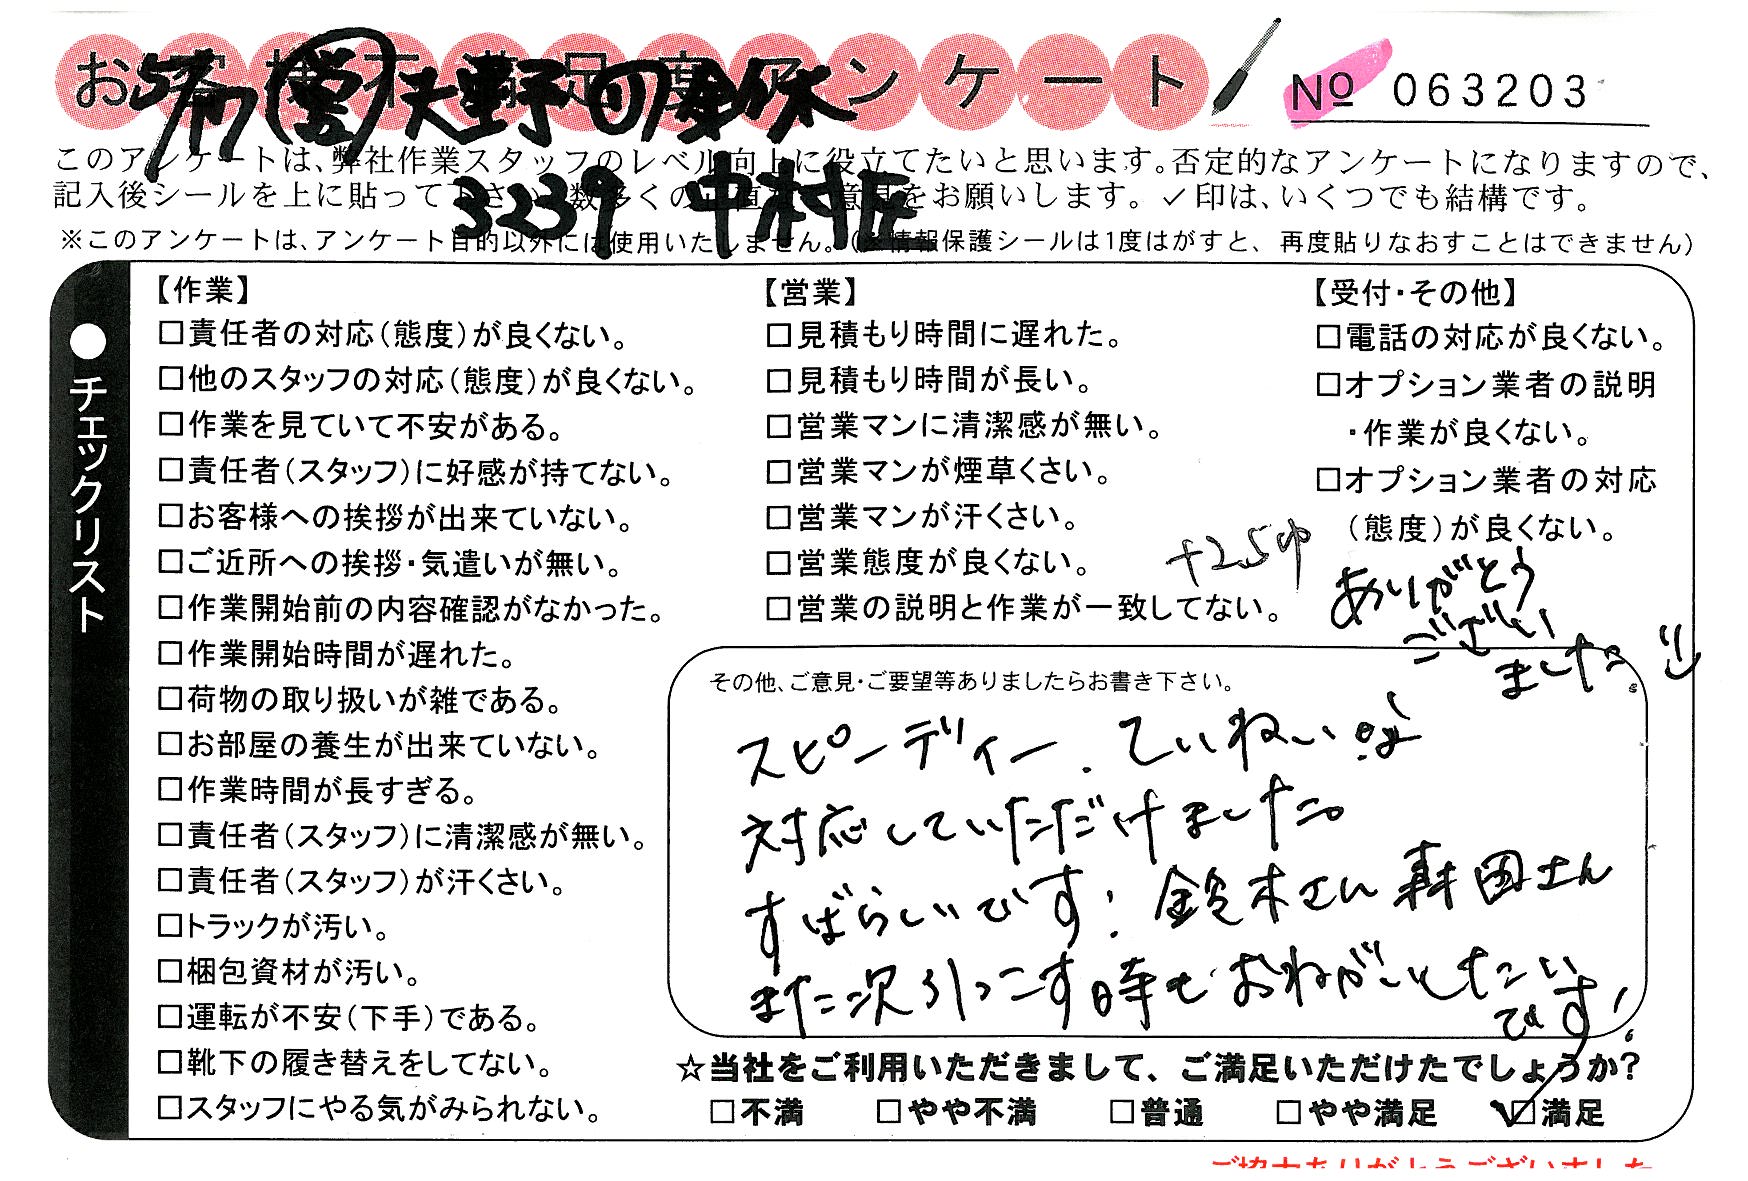 お客様不満足度アンケート
No 063203
3239 中村店
このアンケートは、弊社作業スタッフのレベル向上に役立てたいと思います。否定的なアンケートになりますので、
記入後シールを上に貼って下さい。数多くの正直な意見をお願いします。✓印は、いくつでも結構です。
※このアンケートは、アンケート目的以外には使用いたしません。(※情報保護シールは1度はがすと、再度貼りなおすことはできません)
●チェックリスト
【作業】
□責任者の対応(態度)が良くない。
□他のスタッフの対応(態度)が良くない。
□作業を見ていて不安がある。
□責任者(スタッフ)に好感が持てない。
□お客様への挨拶が出来ていない。
□ご近所への挨拶・気遣いが無い。
□作業開始前の内容確認がなかった。
□作業開始時間が遅れた。
□荷物の取り扱いが雑である。
□お部屋の養生が出来ていない。
□作業時間が長すぎる。
□責任者(スタッフ)に清潔感が無い。
□責任者(スタッフ)が汗くさい。
□トラックが汚い。
□梱包資材が汚い。
□運転が不安(下手)である。
□靴下の履き替えをしてない。
□スタッフにやる気がみられない。
【営業】
□見積もり時間に遅れた。
□見積もり時間が長い。
□営業マンに清潔感が無い。
□営業マンが煙草くさい。
□営業マンが汗くさい。
□営業態度が良くない。
□営業の説明と作業が一致してない。
【受付・その他】
□電話の対応が良くない。
□オプション業者の説明
・作業が良くない。
□オプション業者の対応
(態度)が良くない。
ありがとう
ござい
ました。
その他、ご意見・ご要望等ありましたらお書き下さい。
スピーディー、ていねいな
対応していただけました。
すばらしいです! 鈴木さん 森田さん
また次引っこす時もおねがいしたい
です!
☆当社をご利用いただきまして、ご満足いただけたでしょうか?
□不満 □やや不満 □普通 □やや満足 ☑満足
ご協力ありがとうございました